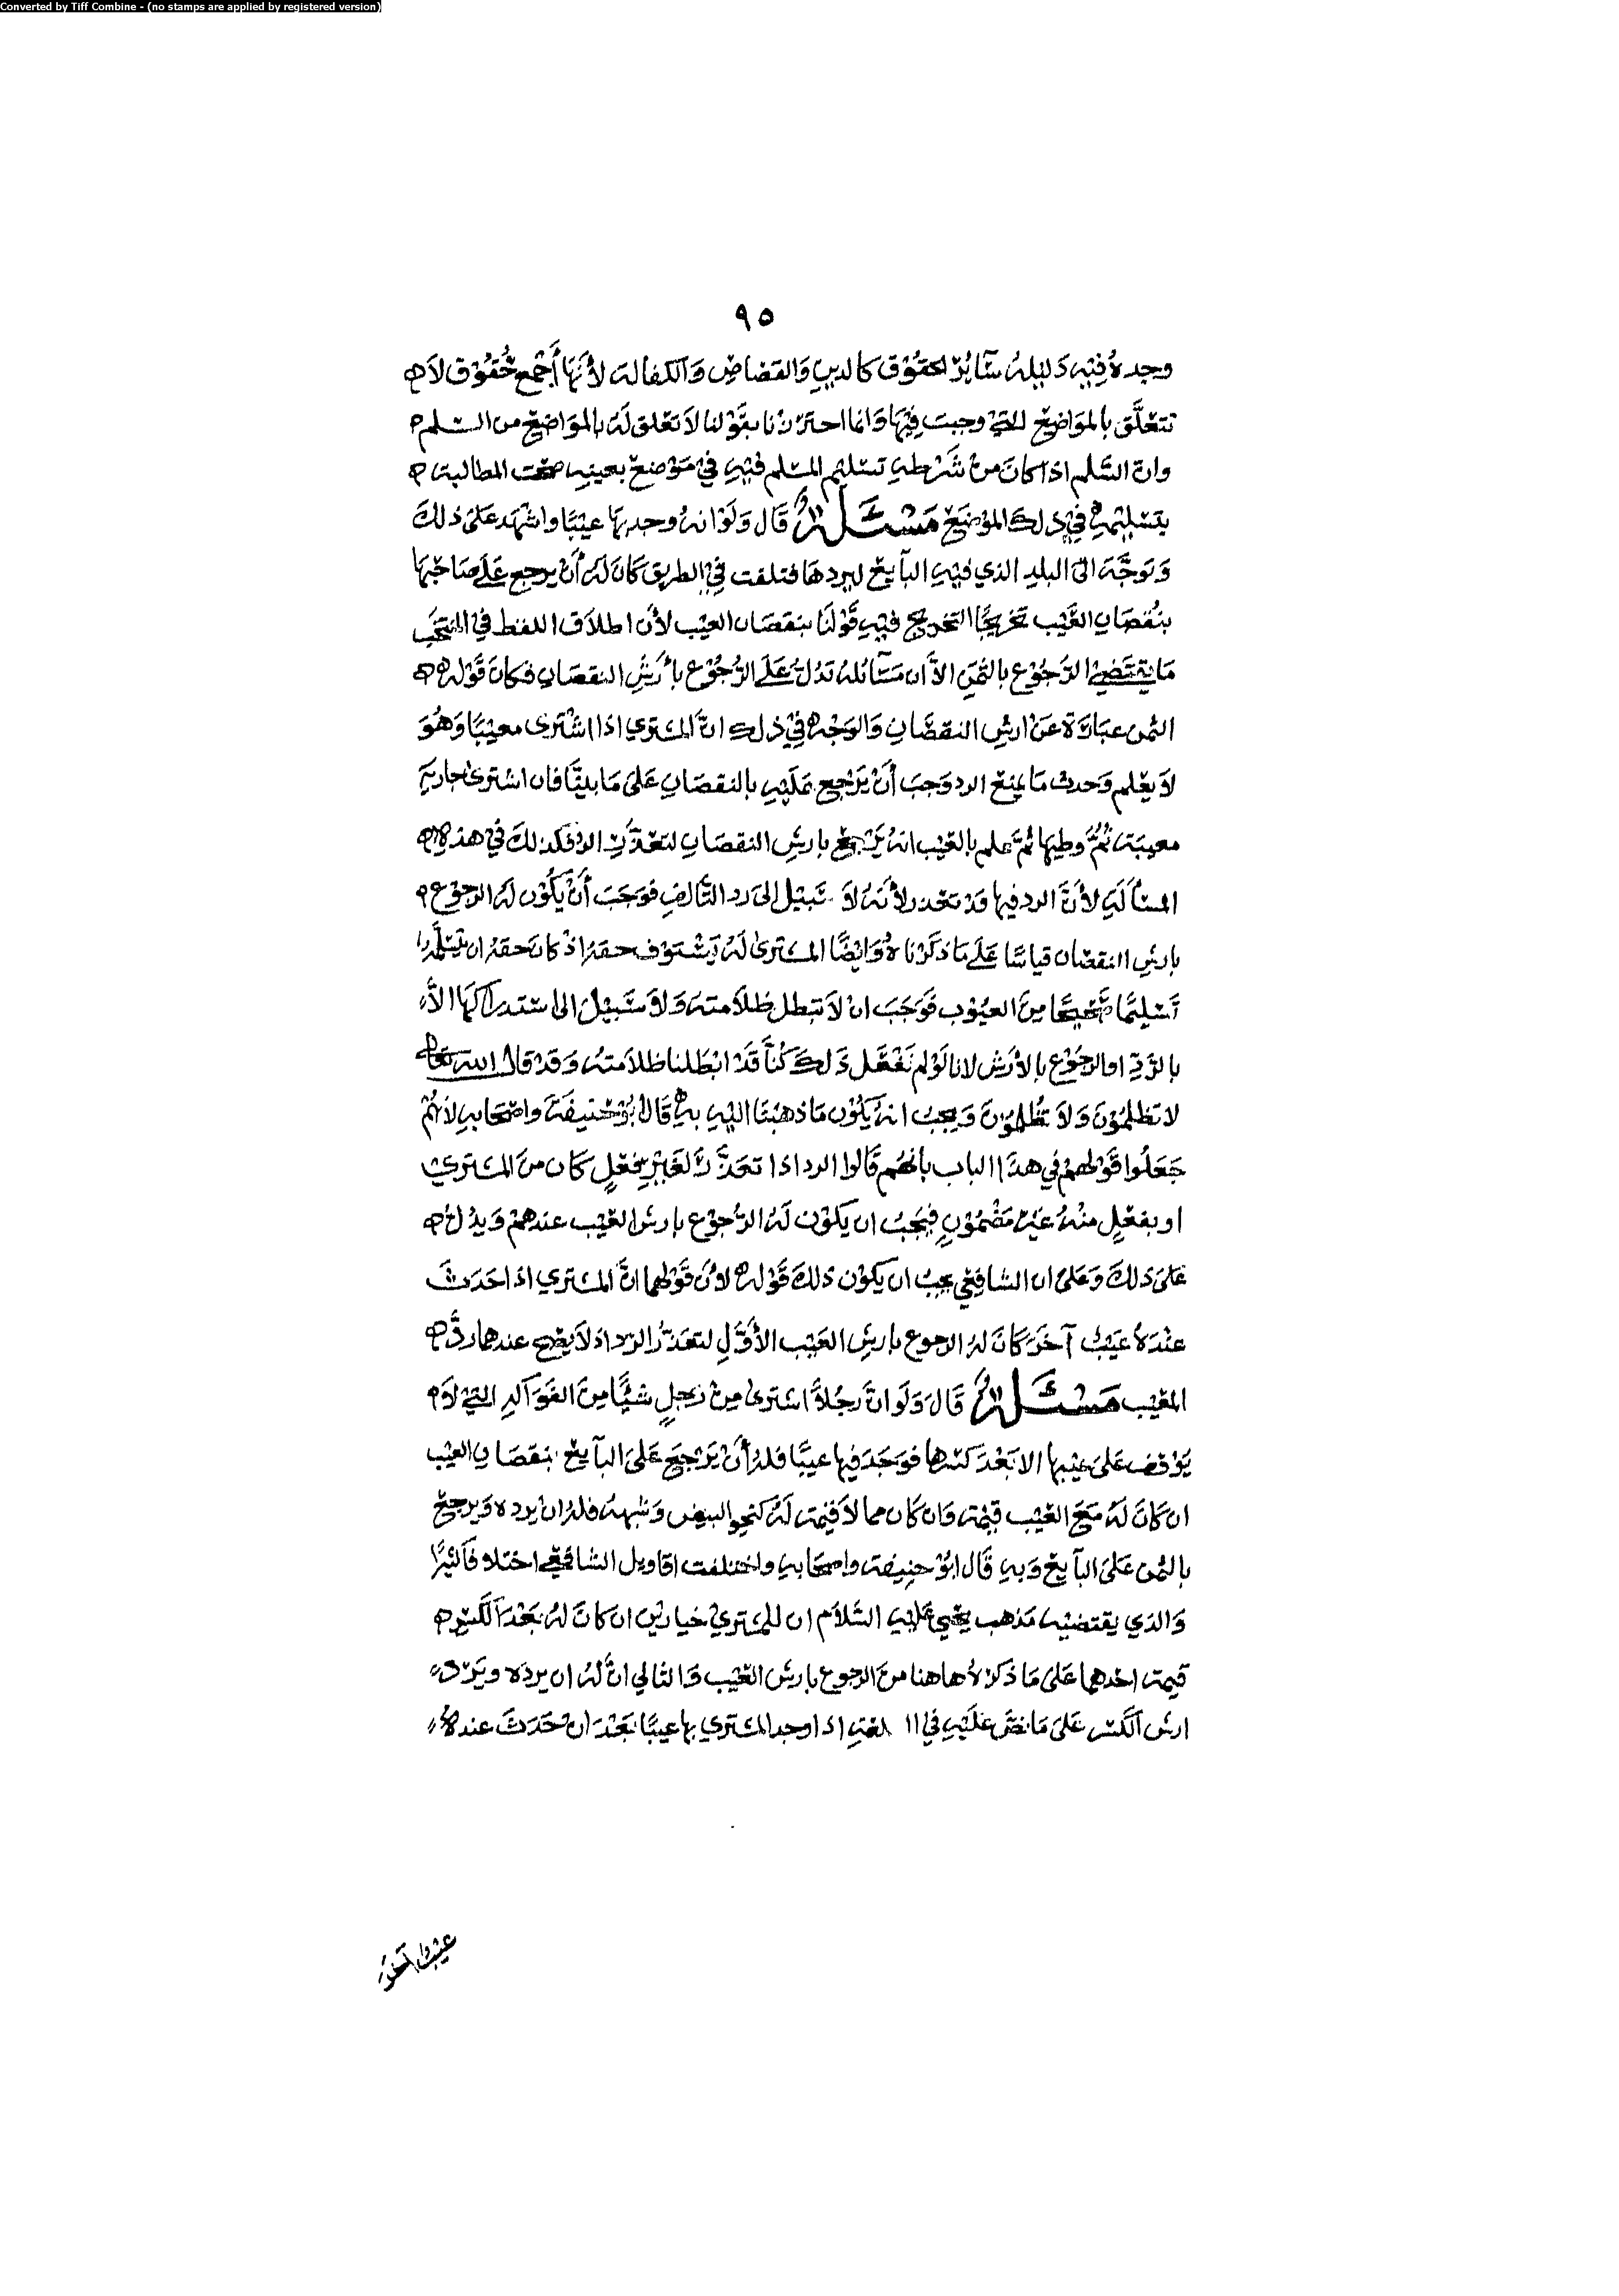 Converted by Tiff Combine - (no stamps are applied by registered version)
٩٥
وجده فيه دليله سآئر الحقوق كالدين والقصاص والكفالة لأنها أجمع حقوق لا
تتعلق بالمواضع التي وجبت فيها وانما احترزنا بقولنا لا تعلق له بالمواضع من السلم
وان السلم اذا كان من شرطه تسليم المسلم فيه في موضع بعينه صحت المطالبة
بتسليمه في ذلك الموضع مسئلة قال ولو انه وجد بها عيبا واشهد على ذلك
وتوجه الى البلد الذي فيه البآيع ليردها فتلفت في الطريق كان له أن يرجع على صاحبها
بنقصان العيب تخريجا التخريج فيه قولنا بنقصان العيب لأن اطلاق اللفظ في المنتخب
ما يقتضي الرجوع بالثمن الا أن مسآئله تدل على الرجوع بأرش النقصان فكان قوله
الثمن عبارة عن ارش النقصان والوجه في ذلك ان المشتري اذا اشترى معيبا وهو
لا يعلم وحدث ما يمنع الرد وجب أن يرجع عليه بالنقصان على ما بينا فان اشترى جارية
معيبة ثم وطيها ثم علم بالعيب انه يرجع بارش النقصان لتعذر الرد فكذلك في هذه
المسألة لأن الرد فيها قد تعذر لأنه لا سبيل الى رد التالف فوجب أن يكون له الرجوع
بارش النقصان قياسا على ما ذكرناه وايضا المشترى له يستوف حقه اذ كان حقه ان يتسلمها
تسليما صحيحا من العيوب فوجب ان لا تبطل ظلامته ولا سبيل الى استدراكها الا
بالرد او الرجوع بالأرش لانا لو لم نفعل ذلك كنا قد ابطلنا ظلامته وقد قال الله تعالى
لا تظلمون ولا تظلمون ويجب انه يكون ما ذهبنا اليه به قال ابو حنيفة واصحابه لأنهم
جعلوا قولهم في هذا الباب بانهم قالوا الرد اذا تعذر لغير فعل كان من المشتري
او بفعل منه غير مضمون فيجب ان يكون له الرجوع بارش العيب عندهم ويدل
على ذلك وعلى ان الشافعي يجب ان يكون ذلك قوله لأن قولهما ان المشتري اذا حدث
عنده عيب آخر كان له الرجوع بارش العيب الأول لتعذر الرد اذ لا يصح عندهما رد
المعيب مسئلة قال ولو ان رجلا اشترى من رجل شيئا من الفوآكه التي لا
يوقف على عيبها الا بعد كسرها فوجد فيها عيبا فله أن يرجع على البآيع بنقصان العيب
ان كان له مع العيب قيمة وان كان مما لا قيمة له كنحو البيض وشبهه فله ان يرده ويرجع
بالثمن على البآيع وبه قال ابو حنيفة واصحابه واختلفت اقاويل الشافعي اختلافا كثيرا
والذي يقتضيه مذهب يحيى عليه السلام ان للمشتري خيارين ان كان له بعد الكسر
قيمة احدهما على ما ذكره هاهنا من الرجوع بارش العيب والثاني ان له ان يرده ويرد
ارش الكسر على ما نص عليه في اذا وجد المشتري بها عيبا بعد ان حدث عنده
عيب آخر